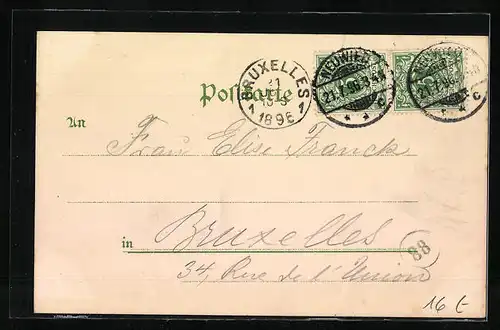 BRUXELLES
1 1
1896
NEUWIED
21.7.96
c
21.7.96
c
Postkarte
An
Frau Elise Franck
in
Bruxelles
34, Rue de l'Union
88
16 €